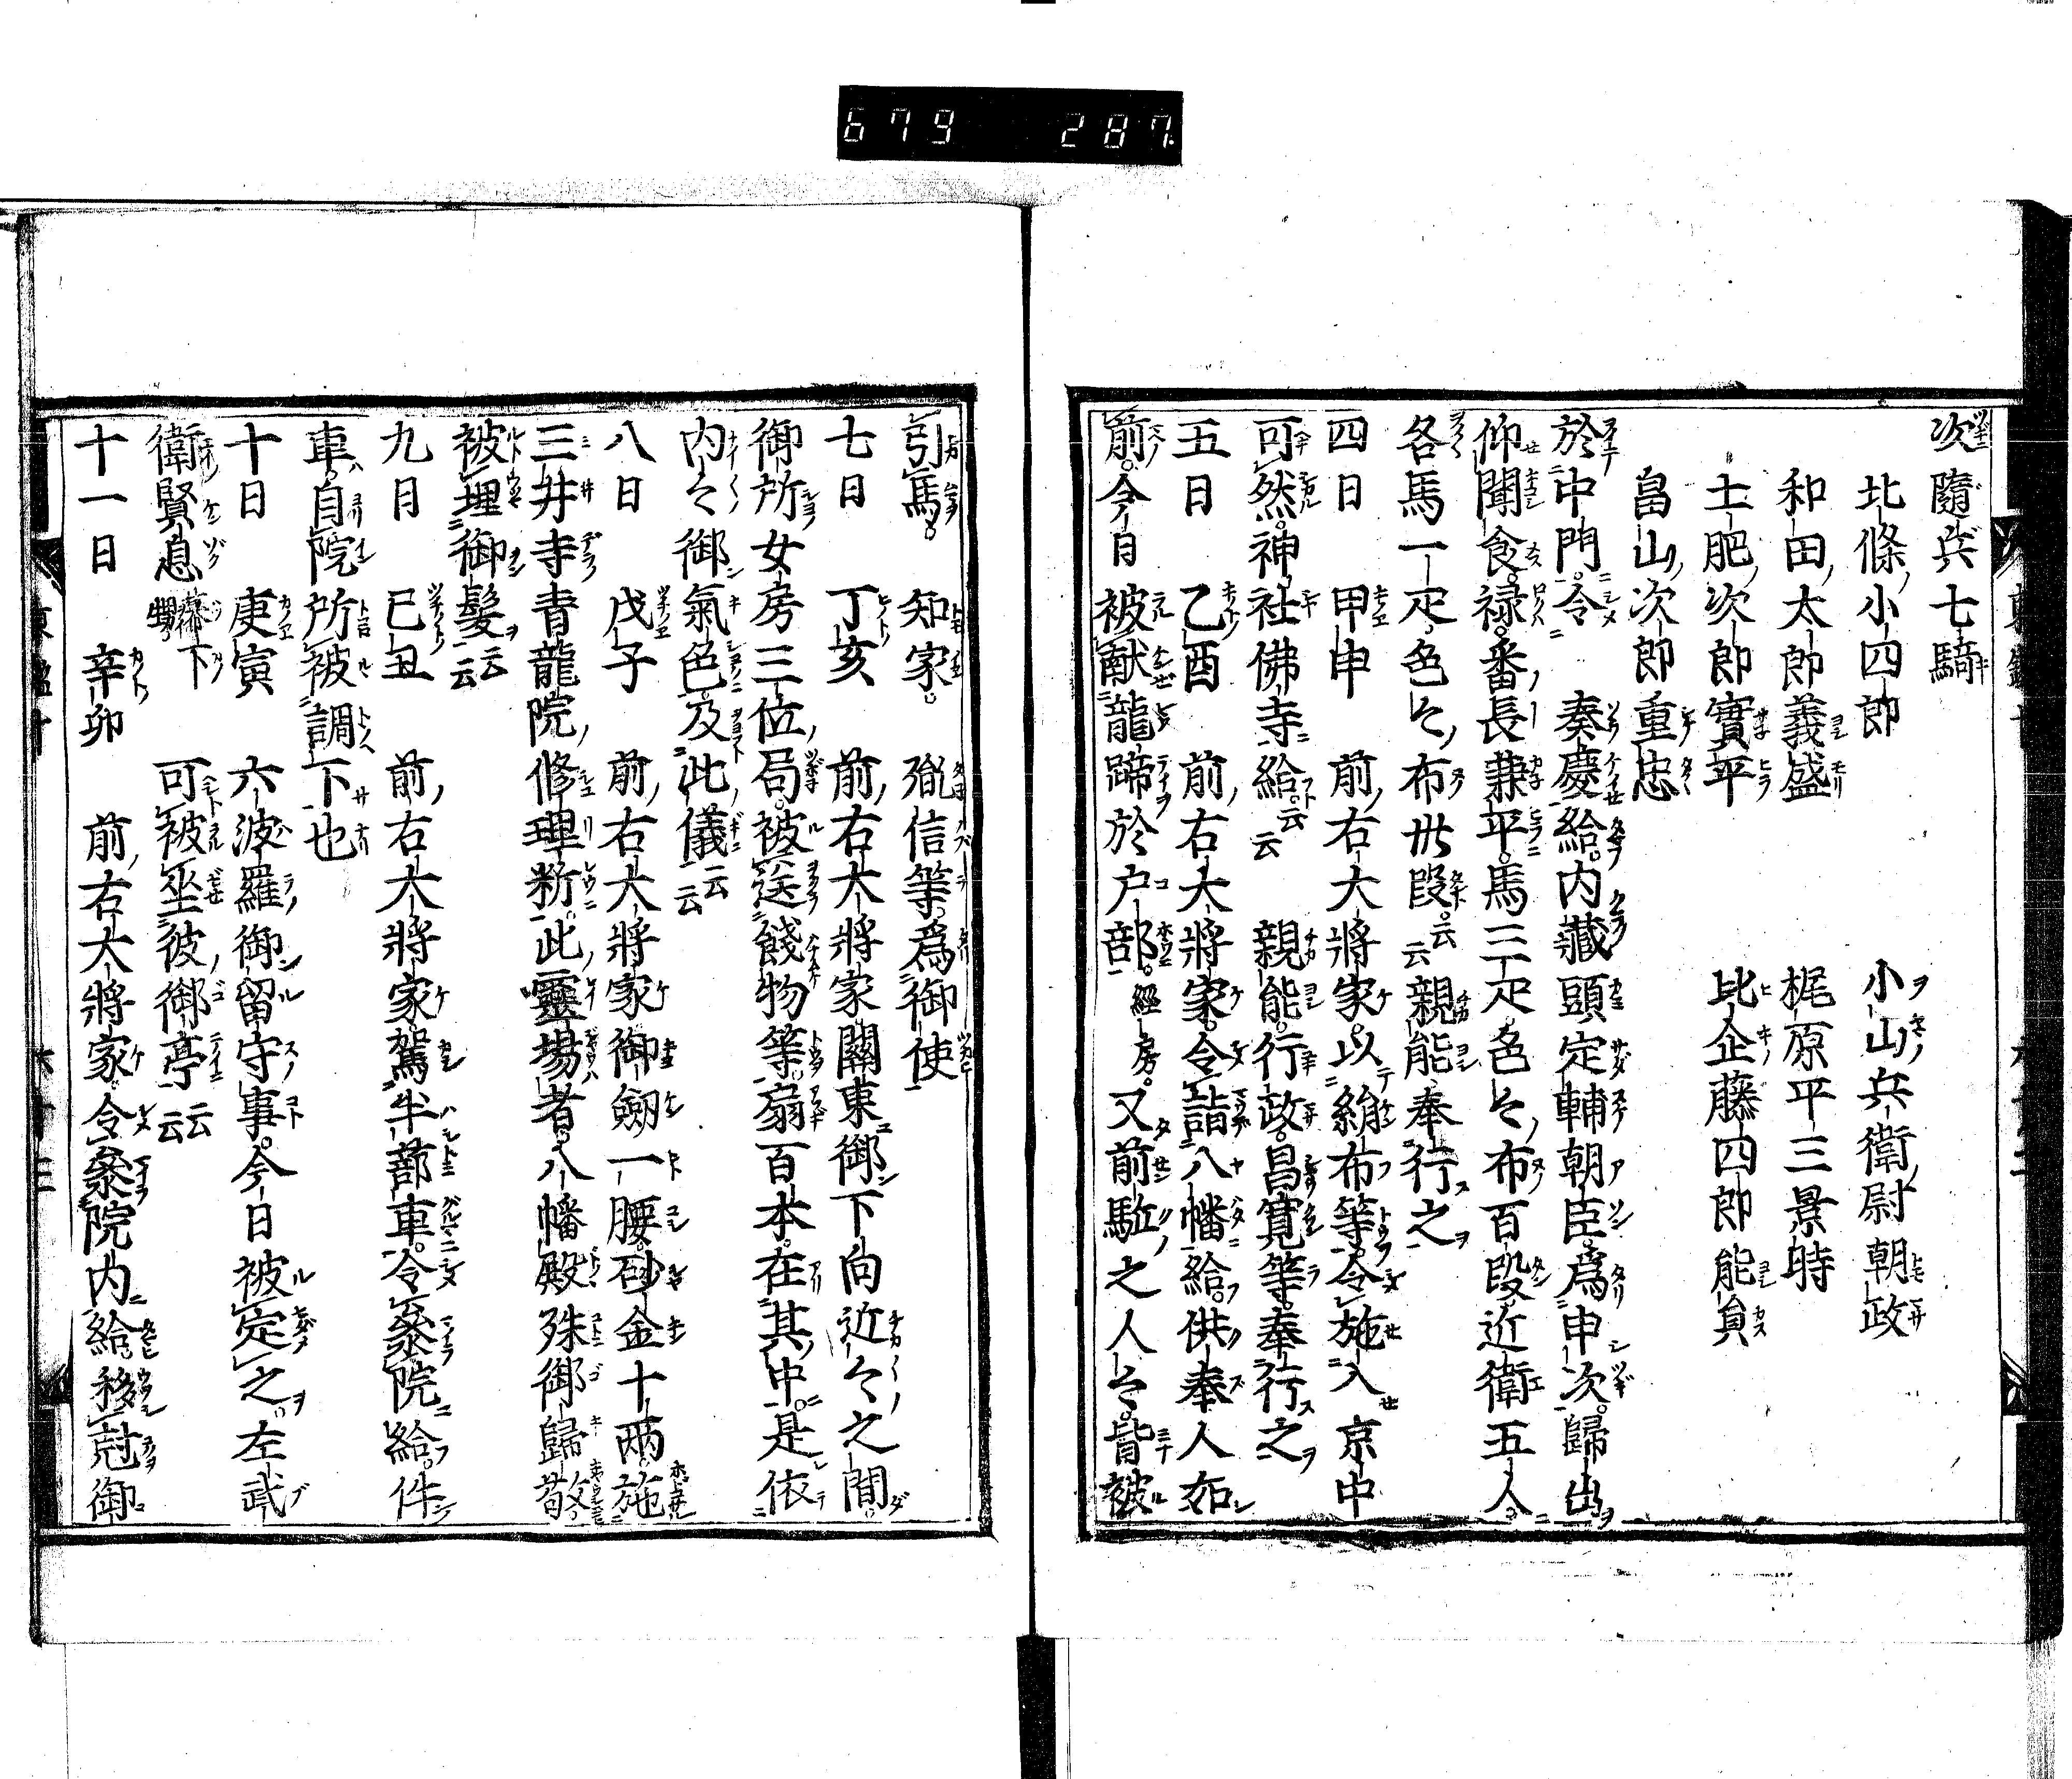 679 287.
次隨兵七騎
北條小四郎 小山兵衛尉朝政
和田太郎義盛 梶原平三景時
土肥次郎實平 比企藤四郎能員
畠山次郎重忠
於中門令 奏慶給内藏頭定輔朝臣爲申次歸出
仰聞食禄番長兼平馬三疋色々布百段近衛五人
各馬一疋色々布卅段云云親能奉行之
四日 甲申 前右大將家以絹布等令施入京中
可然神社佛寺給云云 親能行政昌寛等奉行之
五日 乙酉 前右大將家令詣八幡給供奉人如
前今日 被献龍蹄於户部經房又前駈之人々皆被
引馬 知家 隨信等爲御使
七日 丁亥 前右大將家關東御下向近々之間
御所女房三位局被送餞物等扇百本在其中是依
内々御氣色及此儀云云
八日 戊子 前右大將家御劔一腰砂金十兩施
三井寺青龍院修理新此靈場者八幡殿殊御歸敬
被埋御髮云云
九日 己丑 前右大將家駕半蔀車令參院給件
車自院所被調下也
十日 庚寅 六波羅御留守事今日被定之左武
衛賢息幕下甥 可被坐彼御亭云云
十一日 辛卯 前右大將家令參院内給移冠御